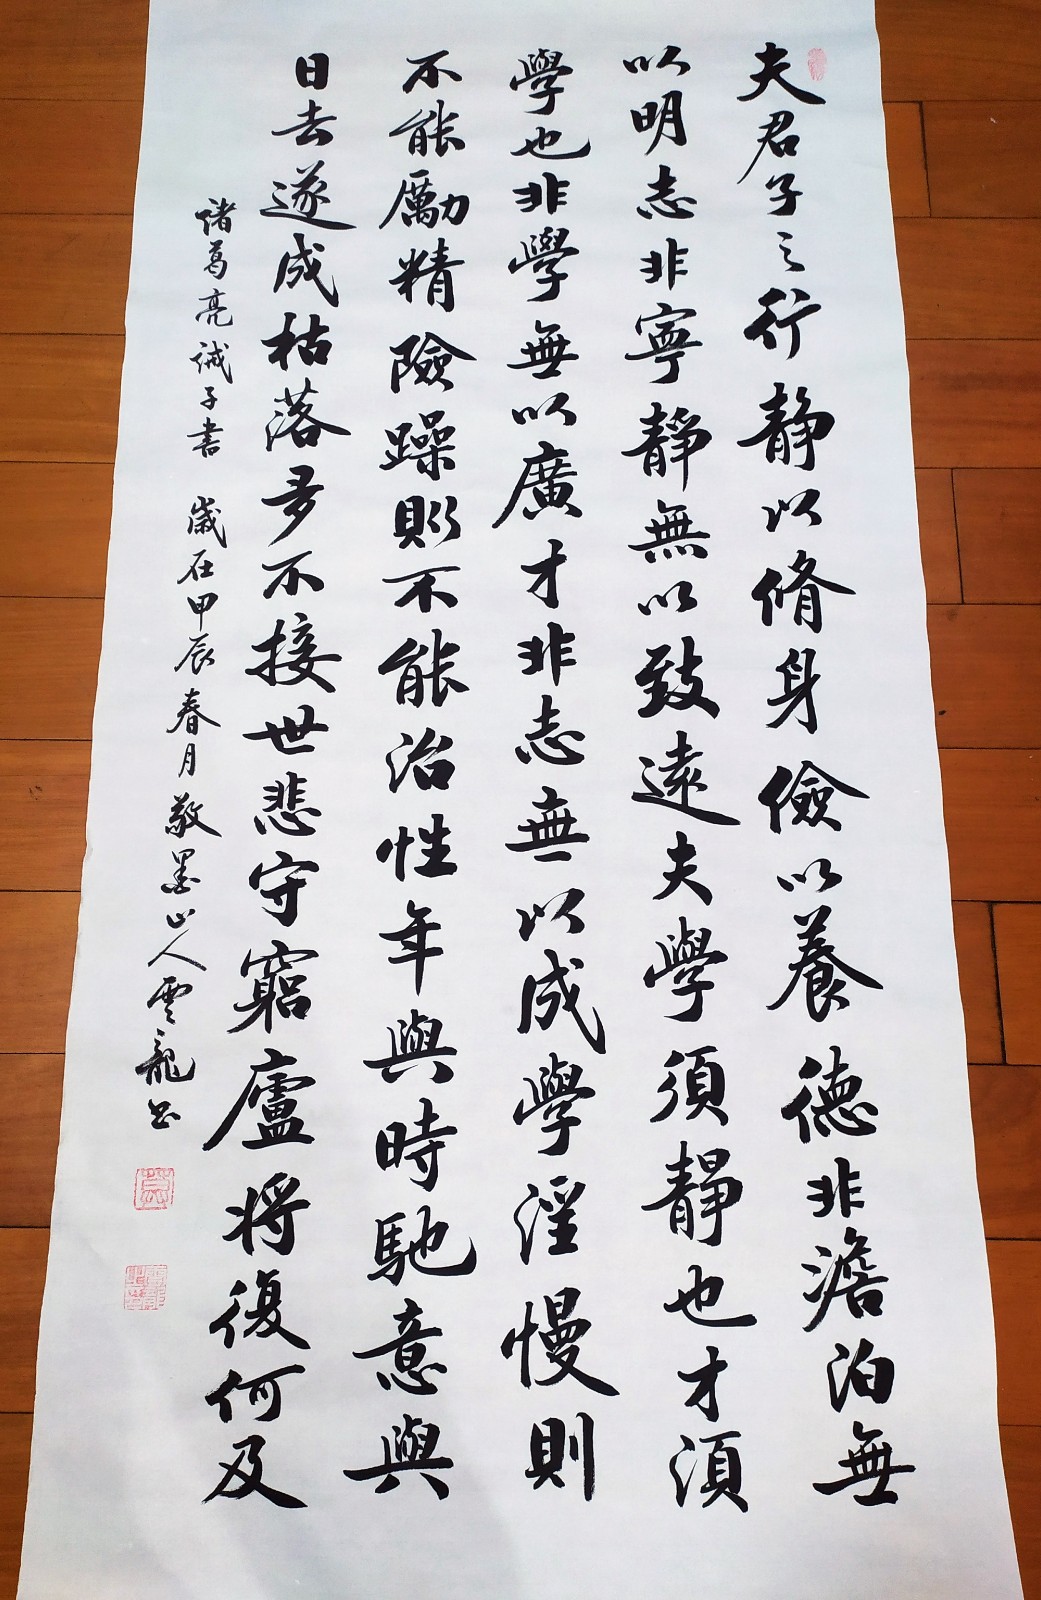 夫君子之行静以脩身儉以養德非澹泊無
以明志非寧靜無以致遠夫學須靜也才須
學也非學無以廣才非志無以成學淫慢則
不能勵精險躁則不能治性年與時馳意與
日去遂成枯落多不接世悲守窮廬將復何及
諸葛亮誡子書 歲在甲辰春月敬墨山人雲龍書